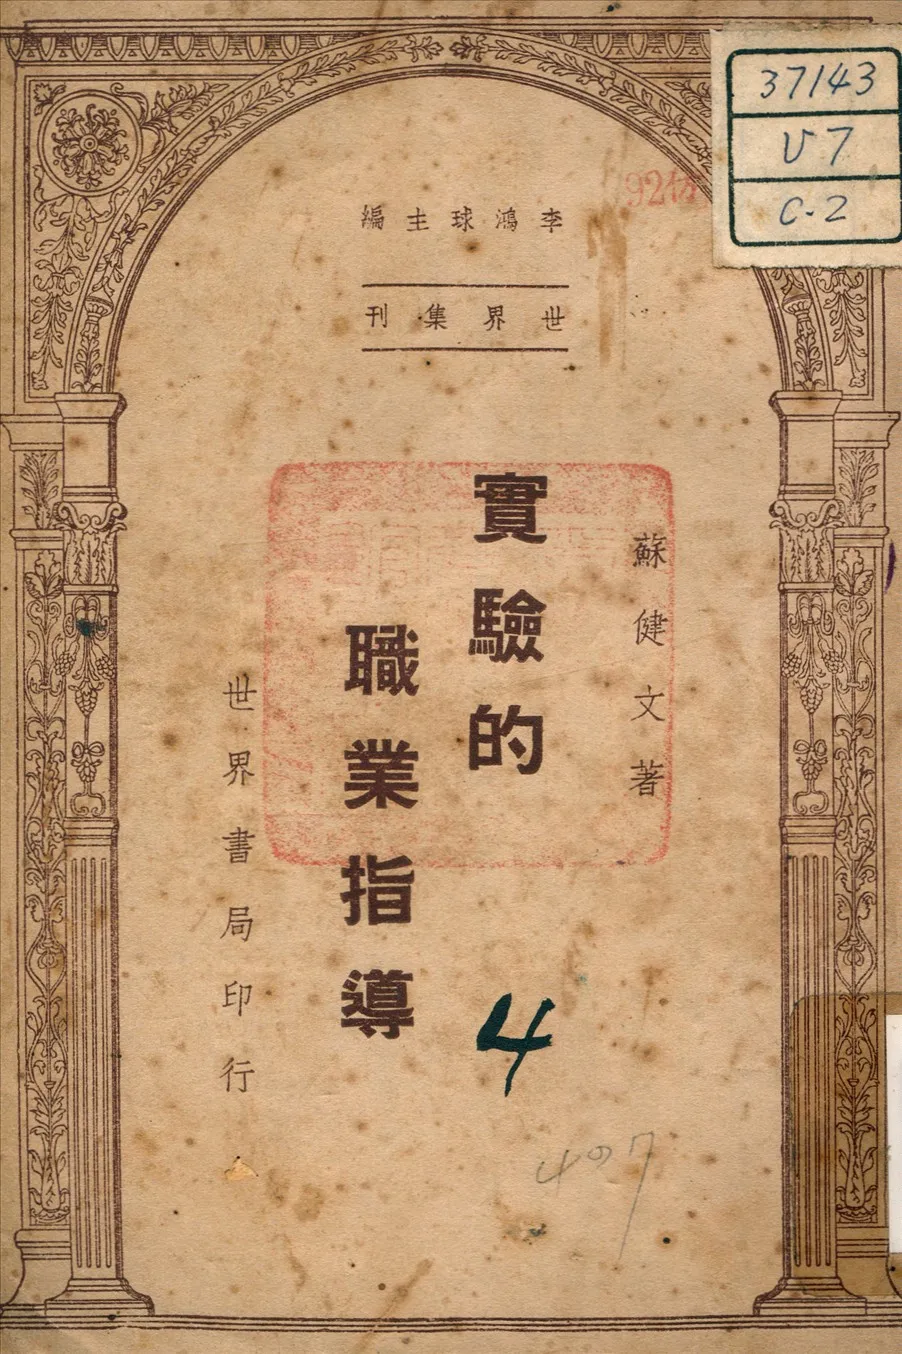 李鴻球主編
世界集刊
蘇健文著
實驗的
職業指導
世界書局印行
37143
U7
C.2
4
407